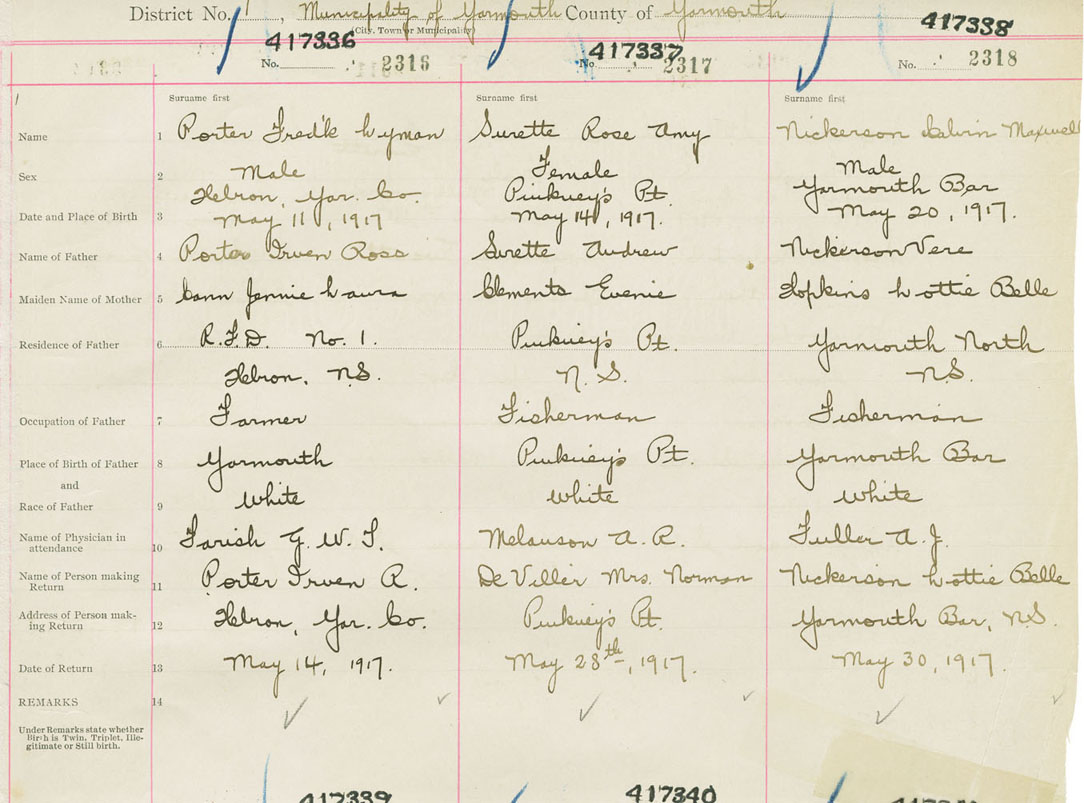 District No. 1, Municipality of Yarmouth County of Yarmouth
(City, Town or Municipality)
417336 417337 417338
No. 2316 No. 2317 No. 2318
Surname first Surname first Surname first
Name 1 Porter Fred'k Lyman Surette Rose Amy Nickerson Calvin Maxwell
Sex 2 Male Female Male
Hebron, Yar. Co. Pinkney's Pt. Yarmouth Bar
Date and Place of Birth 3 May 11, 1917 May 14, 1917. May 20, 1917.
Name of Father 4 Porter Irven Ross Surette Andrew Nickerson Vere
Maiden Name of Mother 5 Cann Jennie Laura Clements Evenie Hopkins Lottie Belle
Residence of Father 6 R.F.D. No. 1. Pinkney's Pt. Yarmouth North
Hebron, N.S. N.S. N.S.
Occupation of Father 7 Farmer Fisherman Fisherman
Place of Birth of Father 8 Yarmouth Pinkney's Pt. Yarmouth Bar
and
Race of Father 9 White White White
Name of Physician in
attendance 10 Farish G. W. T. Melanson A. R. Fuller A. J.
Name of Person making
Return 11 Porter Irven R. De Viller Mrs. Norman Nickerson Lottie Belle
Address of Person mak-
ing Return 12 Hebron, Yar. Co. Pinkney's Pt. Yarmouth Bar, N.S.
Date of Return 13 May 14, 1917. May 28th, 1917. May 30, 1917.
REMARKS 14
Under Remarks state whether
Birth is Twin, Triplet, Ille-
gitimate or Still birth.
417339 417340